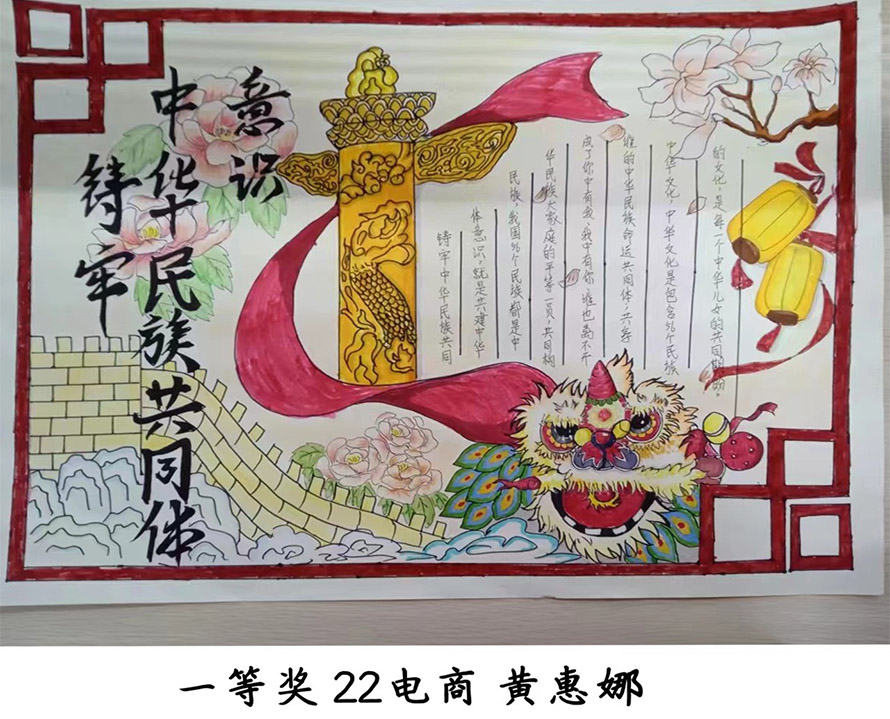 铸牢
中华民族共同体
意识
铸牢中华民族共同
体意识，就是共建中华
民族，我国56个民族都是中
华民族大家庭的平等一员，共同构
成了你中有我，我中有你，谁也离不开
谁的中华民族命运共同体，共享
中华文化，中华文化是包含56个民族
的文化，是每一个中华儿女的共同
一等奖 22电商 黄惠娜